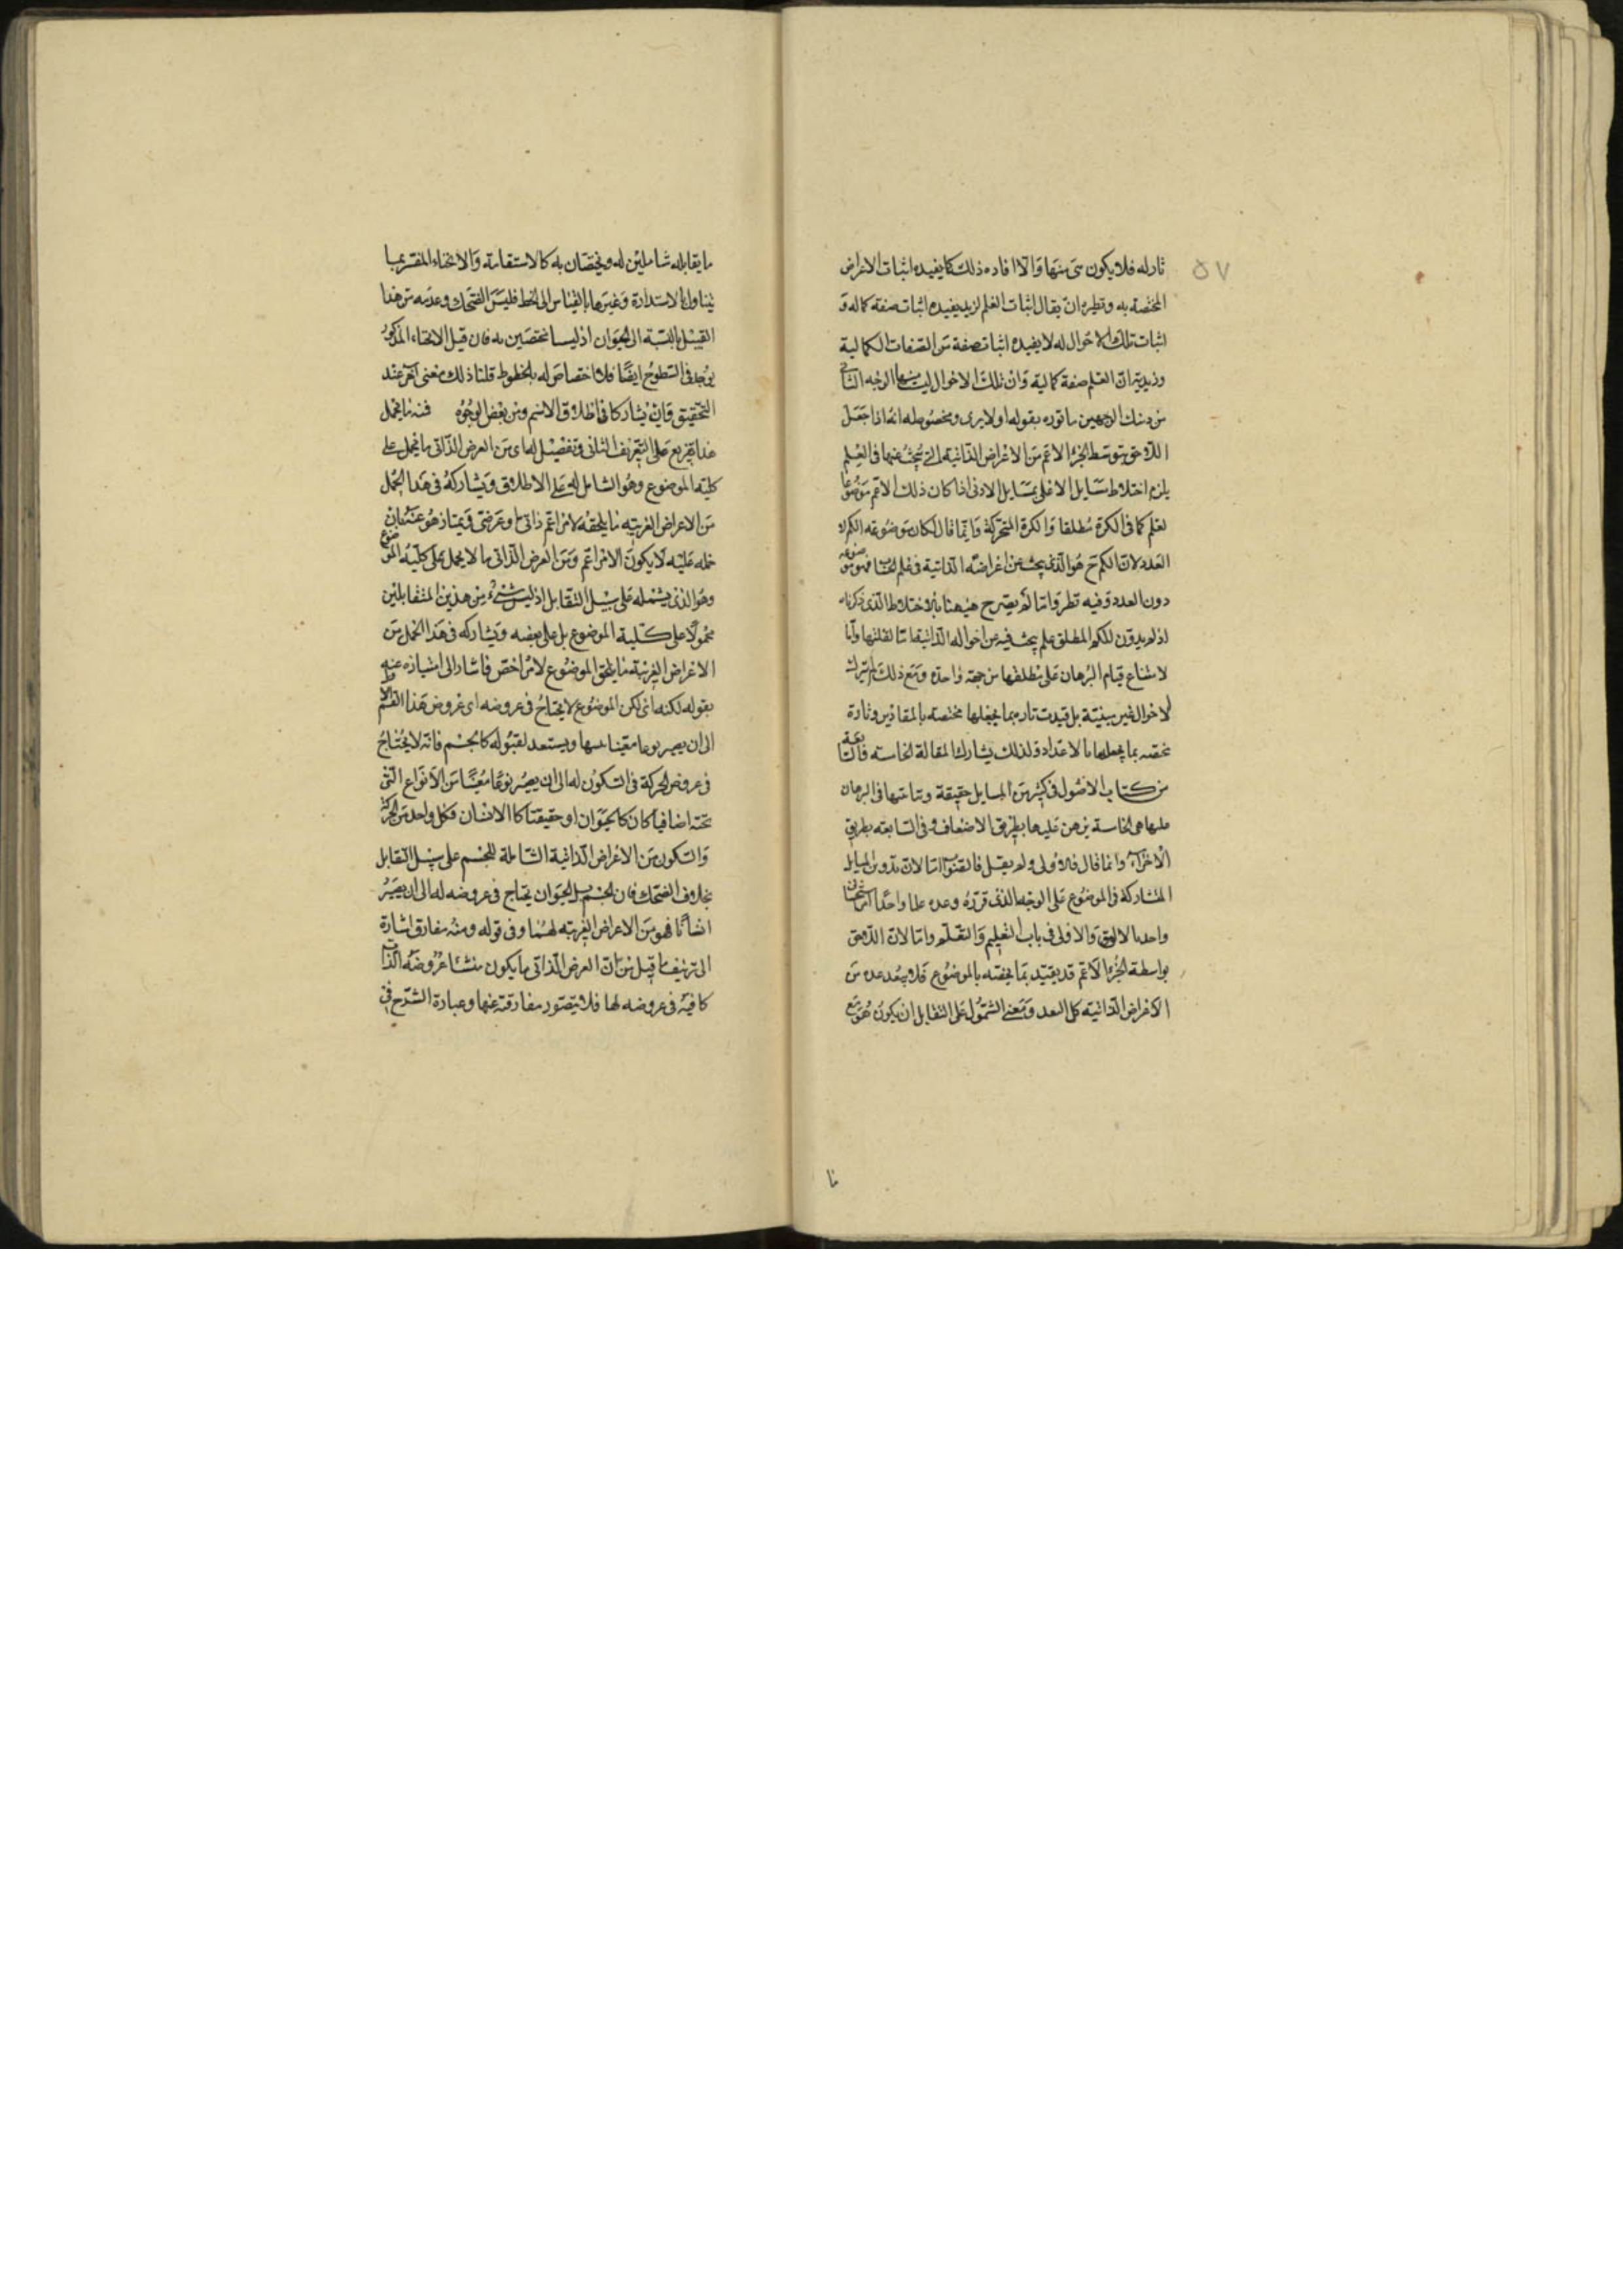 ٥٧
ثار له فلا يكون شئ منها والا افاده ذلك كما يفيده اثبات الاعراض
المختصة به ونظيره ان يقال اثبات العلم لزيد يفيده اثبات صفة كماله و
اثبات تلك الاحوال له لا يفيده اثبات صفة من الصفات الكمالية
وزيديته ان العلم صفة كمالية وان تلك الاحوال ليست منها الوجه الثاني
من الوجهين ما قوره بقوله اولا يرى ومحصوله انه اذا جعل
اللاحق بتوسط الجزء الاعم من الاعراض الذاتية التي يبحث عنها في العلم
يلزم اختلاط مسايل الاعلى بمسايل الادنى اذا كان ذلك الاعم موضوعا
لعلم كما في الكرة مطلقا والكرة المتحركة وانما قال لكان موضوعه الكم لا
العدد لان الكم ح هو الذي يبحث عن اعراضه الذاتية في علم الحساب فهو موضوعه
دون العدد وفيه نظر واما لم يصرح ههنا بالاختلاط الذي ذكرناه
اذ لم يدون للكم المطلق علم يبحث فيه عن احواله الذاتية اما لقلتها واما
لامتناع قيام البرهان على مطلقها من جهة واحدة ومع ذلك لم يترك
الاحوال غير مبينة بل قيدت تارة بما يجعلها مختصة بالمقادير وتارة
تخصه بما يجعلها بالاعداد ولذلك يشارك المقالة الخامسة والسابعة
من كتاب الاصول في كثير من المسايل حقيقة وتباينتها في البرهان
عليها في الخامسة يبرهن عليها بطريق الاضعاف وفي السابعة بطريق
الاجزاء وانما قال فالاولى ولم يقل فالصواب اما لان تدوين المسايل
المتشاركة في الموضوع على الوجه الذي قرره وعده علما واحدا استحسان
واحد بالاليق والاولى في باب التعليم والتعلم واما لان اللاحق
بواسطة الجزء الاعم قد يقيد بما يخصه بالموضوع فلا يبعد عده من
الاعراض الذاتية كل البعد ومعنى الشمول على التقابل ان يكون هو مع
ما
ما يقابله شاملين له ويختصان به كالاستقامة والانحناء المفسر بما
يتناول الاستدارة وغيرها بالقياس الى الخط فليس الضحك وعدمه من هذا
القبيل بالنسبة الى الحيوان اذ ليسا مختصين به فان قيل الانحناء المذكور
يوجد في السطوح ايضا فلا اختصاص له بالخطوط قلنا ذلك معنى آخر عند
التحقيق وان يشاركا في اطلاق الاسم ومن بعض الوجوه فمنه ما يحمل
هذا تفريع على التعريف الثاني وتفصيل له اى من العرض الذاتى ما يحمل على
كلية الموضوع وهو الشامل له على الاطلاق ويشاركه في هذا الحمل
من الاعراض الغريبة ما يلحقه لامر اعم ذاتى او عرضى ويمتاز هو عنه بان
حمله عليه لا يكون لامر اعم ومن العرض الذاتى ما لا يحمل على كلية الموضوع
وهو الذى يشمله على سبيل التقابل اذ ليس شئ من هذين المتقابلين
محمولا على كلية الموضوع بل على بعضه ويشاركه في هذا الحمل من
الاعراض الغريبة ما يلحق الموضوع لامر اخص فاشار الى امتيازه عنه
بقوله لكنه اى لكن الموضوع لا يحتاج في عروضه اى عروض هذا القسم
الى ان يصير نوعا معينا يتهيا ويستعد لقبوله كالجسم فانه لا يحتاج
في عروض الحركة والسكون له الى ان يصير نوعا معينا من الانواع التى
تحته اضافيا كان كالحيوان او حقيقتا كالانسان فكل واحد من الحركة
والسكون من الاعراض الذاتية الشاملة للجسم على سبيل التقابل
بخلاف الضحك فان الجسم بل الحيوان يحتاج في عروضه له الى ان يصير
انسانا فهو من الاعراض الغريبة لهما وفي قوله ومنه مفارق اشارة
الى تزييف ما قيل من ان العرض الذاتى ما يكون منشا عروضه الذات
كافية في عروضه لها فلا يتصور مفارقته عنها وعبارة الشرح في